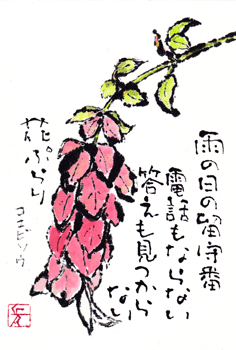 雨の日の留守番
電話もならない
答えも見つから
ない
花ぷらり
コエビソウ